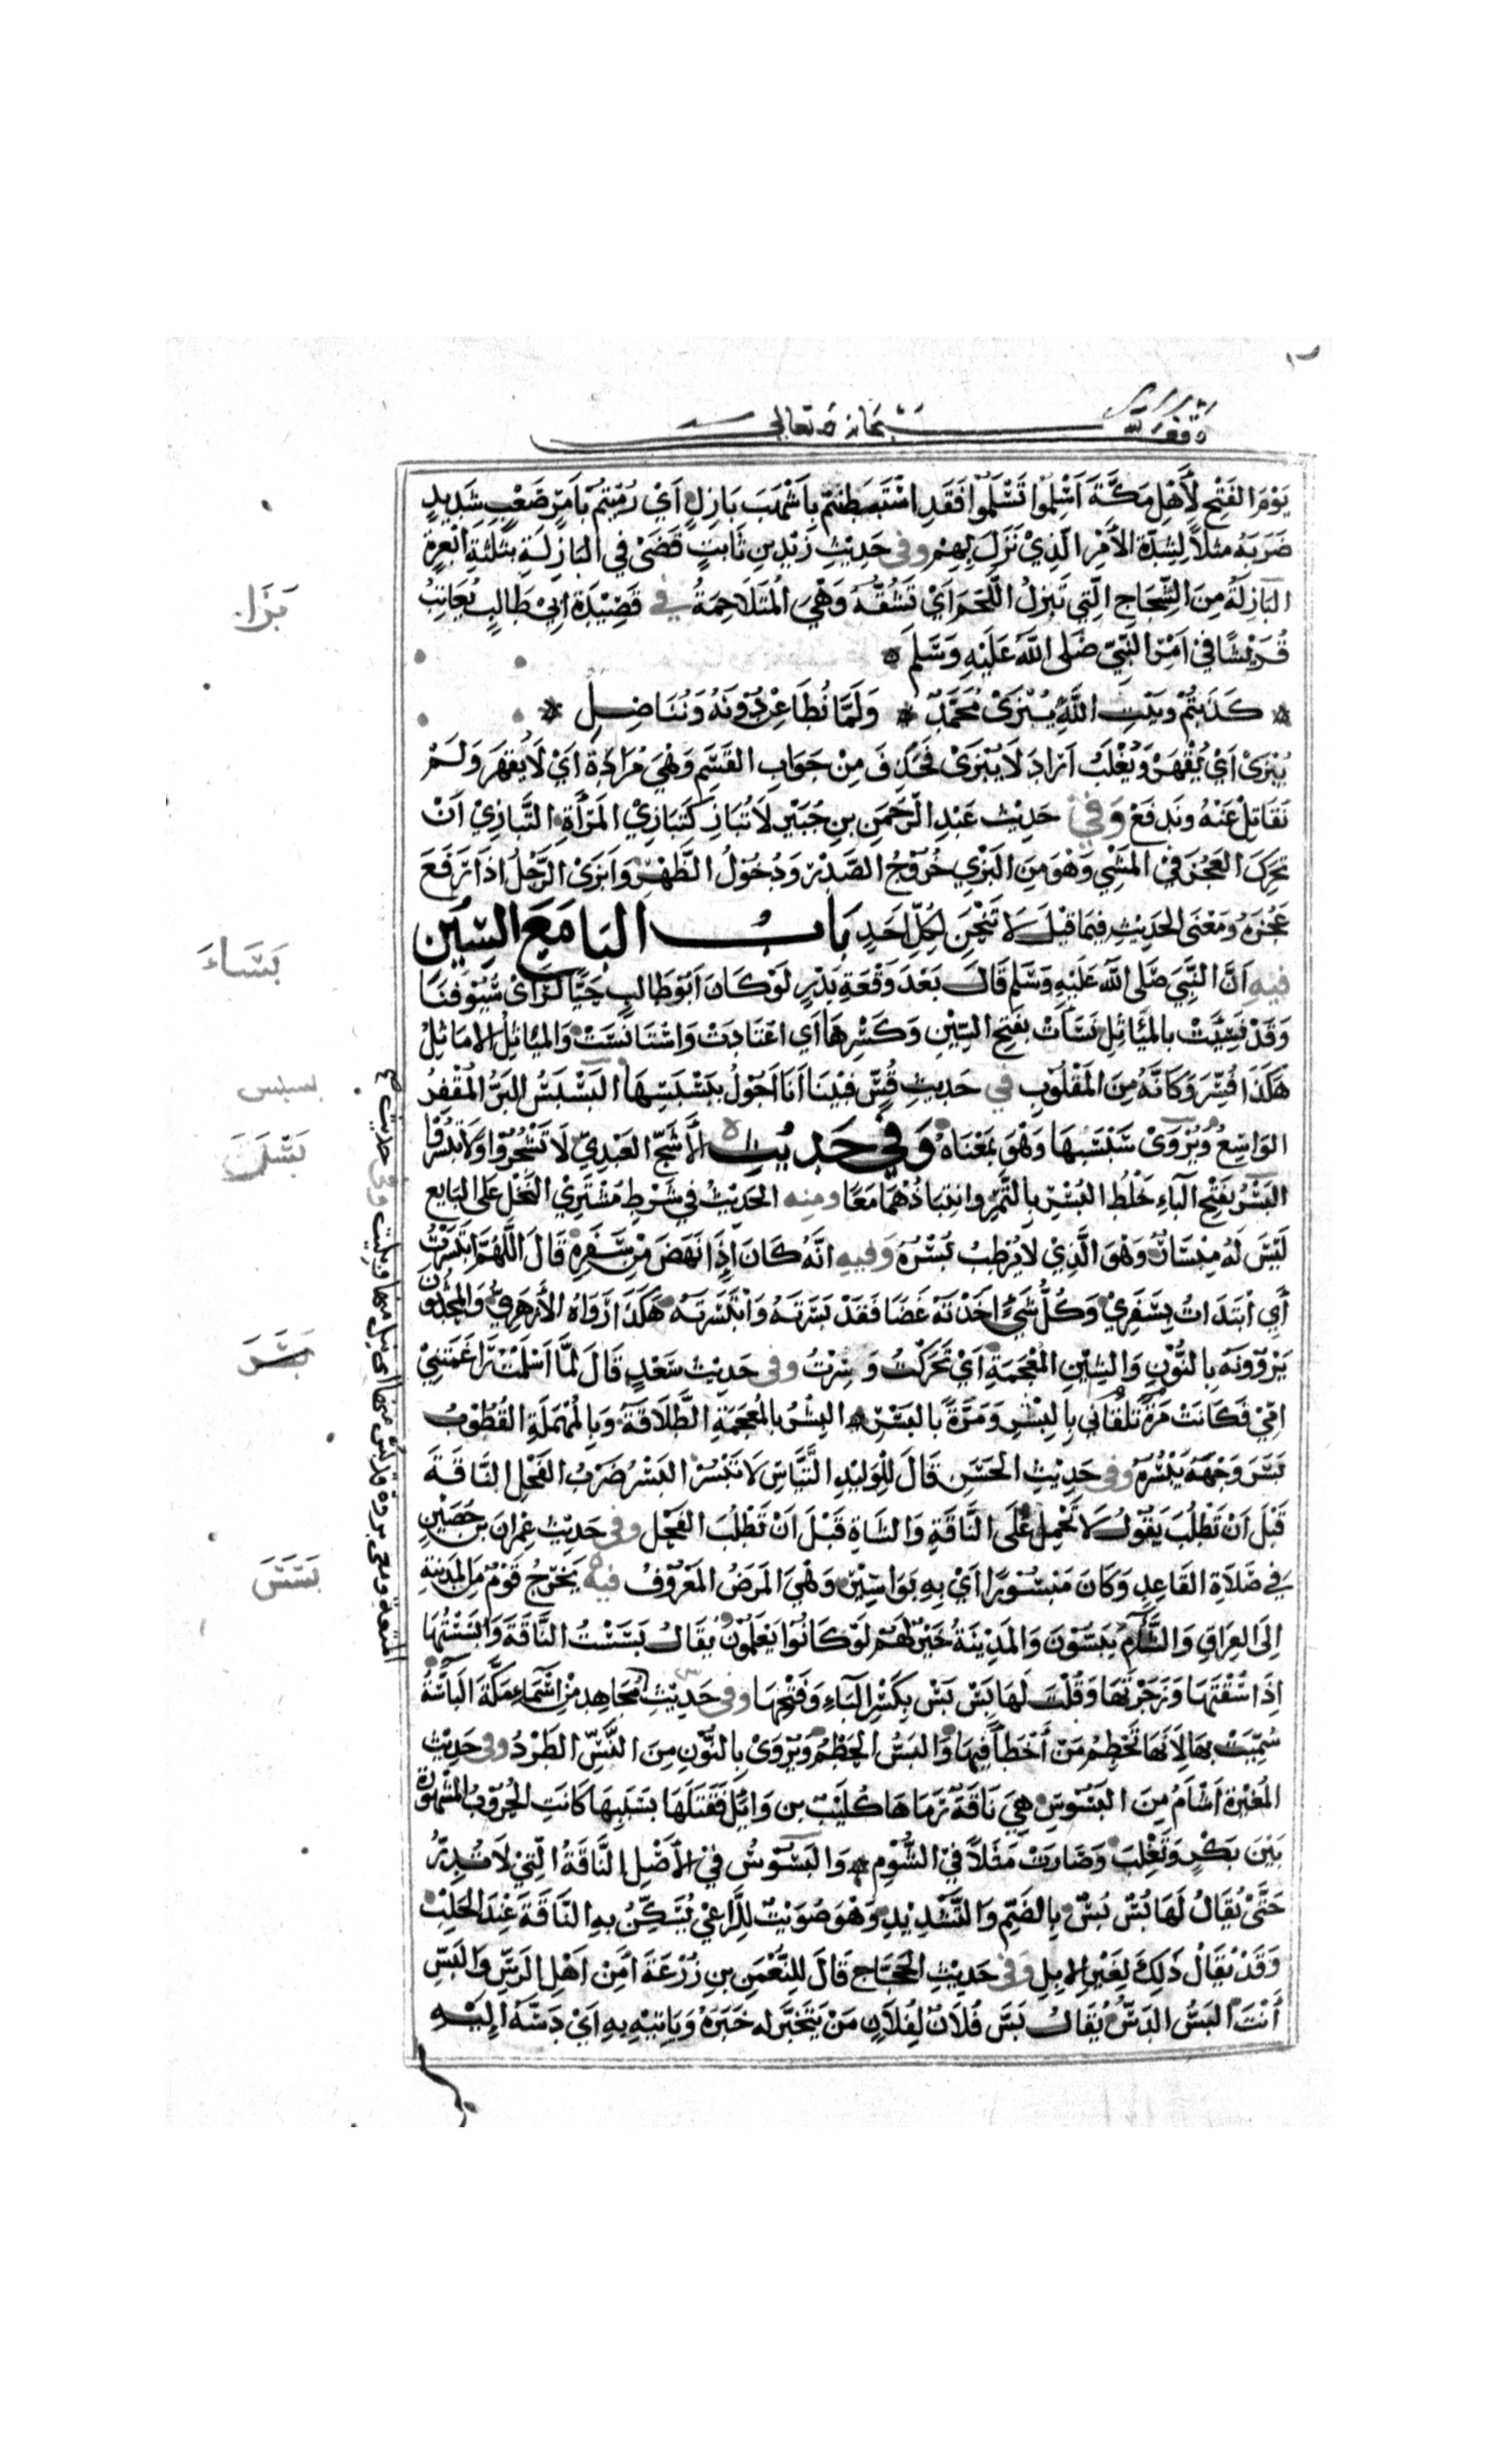 وقف لله سبحانه وتعالى
يَوْمَ الفَتْحِ لِأَهْلِ مَكَّةَ اَسْلِمُوا تَسْلَمُوا فَقَدِ اسْتَبْطَنْتُمْ بِاَشْهَبَ بَازِلٍ اَيْ رُمِيْتُمْ بِاَمْرٍ صَعْبٍ شَدِيدٍ
ضَرَبَهُ مثلاً لِشِدَّةِ الأَمْرِ الَّذِيْ نَزَلَ بِهِمْ وفى حَدِيْثِ زَيْدِ بنِ ثَابتٍ قَضَىْ فى البَازِلَةِ بثَلثَةِ اَبْعِرَةٍ
البَازِلَةُ مِنَ الشِّجَاجِ الَّتِي تَبْزِلُ اللَّحْمَ اَيْ تَشُقُّهُ وَهْيَ المُتَلَاحِمَةُ فى قَصِيْدَةِ اَبِيْ طَالِبٍ يُعَاتِبُ
قُرَيْشًا فى اَمْرِ النَّبِيِّ صَلى اللهُ عَلَيْهِ وَسَلم
كَذَبْتُمْ وبَيْتِ اللَّهِ يُبْزَىْ مُحَمَّدٌ * وَلَمَّا نُطَاعِنْ دُوْنَهُ وَنُنَاضِلِ *
يُبْزَى اَيْ يُقْهَرُ وَيُغْلَبُ اَرَادَ لَا يُبْزَىْ فَحَذَفَ مِنْ جَوَابِ القَسَمِ وَهْيَ مُرَادَةٌ اَيْ لَا يُقْهَرُ وَلَمْ
نُقَاتِلْ عَنْهُ ونُدَافِعْ وَفى حَدِيْث عَبْدِ الرَّحْمَنِ بنِ جُبَيْرٍ لَا تُبَازِ كَتَبَازِيْ المَرْأَةِ التَّبَازِيْ اَنْ
تُحَرِّكَ العَجُزَ فى المَشْيِ وَهْوَ مِنَ البَزَى خُرُوْجُ الصَّدْرِ وَدُخُوْلُ الظَّهْرِ وَاَبْزَى الرَّجُلُ اِذَا رَفَعَ
عَجُزَهُ وَمَعْنَى الحَدِيْثِ فِيمَا قِيْلَ لَا تَنْحَنِ لِكُلِّ اَحَدٍ بَابُ البَا مَعَ السِّيْن
فِيهِ اَنَّ النَّبِيَّ صَلَّى الله عَلَيْهِ وَسَلم قَالَ بَعْدَ وَقْعَةِ بَدْرٍ لَوْ كَانَ اَبُو طَالِبٍ حَيًّا لَرَاَىْ سُيُوْفَنَا
وَقَدْ بَسِئَتْ بِالمَيَاثِلِ بَسَأَتْ بفَتحِ السِّيْنِ وَكَسْرِهَا اَي اعْتَادَتْ وَاسْتَانَسَتْ وَالمَيَاثِلُ الاَمَاثِلُ
هَكَذَا فُسِّرَ وَكَاَنَّهُ مِنَ المَقْلُوْبِ فى حَدِيثِ قُسٍّ فبَيْنَا اَنَا اَجُوْلُ بَسْبَسِهَا البَسْبَسُ البَرُّ المُقْفِرُ
الوَاسِعُ وَيُرْوَىْ سَبْسَبِهَا وَهْوَ بمَعْنَاهُ وَفي حَدِيْث الأَشَجِّ العَبْدِيِّ لَا تَثْجُرُوْا وَلَا تَبْسُرُوْا
البَسْرُ بفَتْحِ البَاءِ خَلْطُ البُسْرِ بِالتَّمْرِ وانتِبَاذُهُمَا مَعًا ومنه الحَدِيْثُ فى شَرْطِ مُشْتَرِيْ النَّخْلِ عَلَى البَايعِ
لَيْسَ لَهُ مِبْسَارٌ وَهْوَ الَّذِيْ لَا يُرْطِبُ بُسْرُهُ وَفيهِ انَّهُ كَانَ اِذَا نَهَضَ مِنْ سَفَرِهِ قَالَ اللَّهُمَّ ابْتَسَرْتُ
أَيِ ابْتَدَاتُ بِسَفَرِيْ وَكُلُّ شَيْءٍ اَخَذْتَهُ غَضًا فَقَدْ بَسَرْتَهُ وَابْتَسَرْتَهُ هَكَذَا رَوَاهُ الأَزْهَرِيُّ وَالمُحَدِّثُونَ
يَرْوُوْنَهُ بِالنُّوْنِ وَالشِّيْنِ المُعْجَمَةِ اَيْ تَحَرَّكْتُ وَسِرْتُ وفى حَدِيْث سَعْدٍ قَالَ لَمَّا اَسْلَمْتُ رَاغَمَتْنِيْ
اُمِّيْ فَكَانَتْ مَرَّةً تَلْقَانِي بِالبِشْرِ وَمَرَّةً بِالبَسْرِ البِشْرُ بِالمُعْجَمَةِ الطَّلَاقَةُ وَبِالمُهْمَلَةِ القُطُوْبُ
بَسَرَ وَجْهَهُ يَبْسُرُهُ وفى حَدِيْثِ الحَسَنِ قَالَ لِلْوَلِيْدِ التَّيَّاسِ لَا تَبْسُرْ البَسْرُ ضَرْبُ الفَحْلِ النَّاقَةَ
قَبْلَ اَنْ تَطْلُبَ يَقُوْلُ لَا تَحْمِلْ عَلَى النَّاقَةِ وَالشَّاةِ قَبْلَ اَنْ تَطْلُبَ الفَحْل وفى حَدِيْث عِمْرَانَ بْن حُصَيْنٍ
فى صَلَاةِ القَاعِدِ وَكَانَ مَبْسُوْرًا اَيْ بِهِ بَوَاسِيْرُ وَهْيَ المَرَضُ المَعْرُوْفُ فيه يَخْرُجُ قَوْمٌ مِنَ المَدِيْنَةِ
اِلَى العِرَاقِ وَالشَّأْمِ يَبُسُّوْنَ وَالمَدِيْنَةُ خَيْرٌ لَهُمْ لَوْ كَانُوْا يَعْلَمُوْنَ يُقَالُ بَسَسْتُ النَّاقَةَ وَاَبْسَسْتُهَا
اِذَا سُقْتَهَا وَزَجَرْتَهَا وَقُلْتَ لَهَا بِسْ بِسْ بِكَسْرِ البَاءِ وَفَتْحِهَا وفى حَدِيْثِ مُجَاهِد مِنْ اَسْمَاءِ مَكَّةَ البَاسَّةُ
سُمِّيَتْ بِهَا لِاَنَّهَا تَحْطِمُ مَنْ اَخْطَاَ فِيهَا وَالبَسُّ الحَطْمُ وَيُرْوَىْ بِالنُّوْنِ مِنَ النَّسِّ الطَّرْدُ وفى حَدِيْث
المُغِيْرَة اَشْاَمُ مِنَ البَسُوْسِ هِيَ نَاقَةٌ رَمَاهَا كُلَيْبُ بن وَائِلٍ فَقَتَلَهَا بِسَبَبِهَا كَانَتِ الحُرُوْبُ المَشْهُوْرَةُ
بَيْنَ بَكْرٍ وَتَغْلِبَ وَصَارَتْ مَثَلاً فى الشُّوْمِ * وَالبَسُوْسُ فى الأَصْلِ النَّاقَةُ الَّتِيْ لَا تُدِرُّ
حَتَّىْ يُقَالُ لَهَا بُسّ بُسّ بِالضَّمِّ وَالتَّشْدِيْدِ وَهْوَ صُوَيْتٌ لِلرَّاعِيْ يُسَكِّنُ بِهِ النَّاقَةَ عِنْدَ الحَلْبِ
وَقَدْ يُقَالُ ذَلِكَ لِغَيْرِ الإِبِلِ وَفى حَدِيْثِ الحَجَّاجِ قَالَ لِلنُّعْمَنِ بنِ زُرْعَةَ اَمِنْ اَهْلِ الرَّسِّ وَالبَسِّ
أَنْتَ البَسُّ الدَّسُّ يُقَالُ بَسَّ فُلَانٌ لِفُلَانٍ مَنْ يَتَخَبَّرُ له خَبَرَهُ وَيَاتِيْهِ بِهِ اَيْ دَسَّهُ إِلَيْهِ
بَزَا
بَسَاءَ
بسبس
بَسَرَ
بَسَسَ